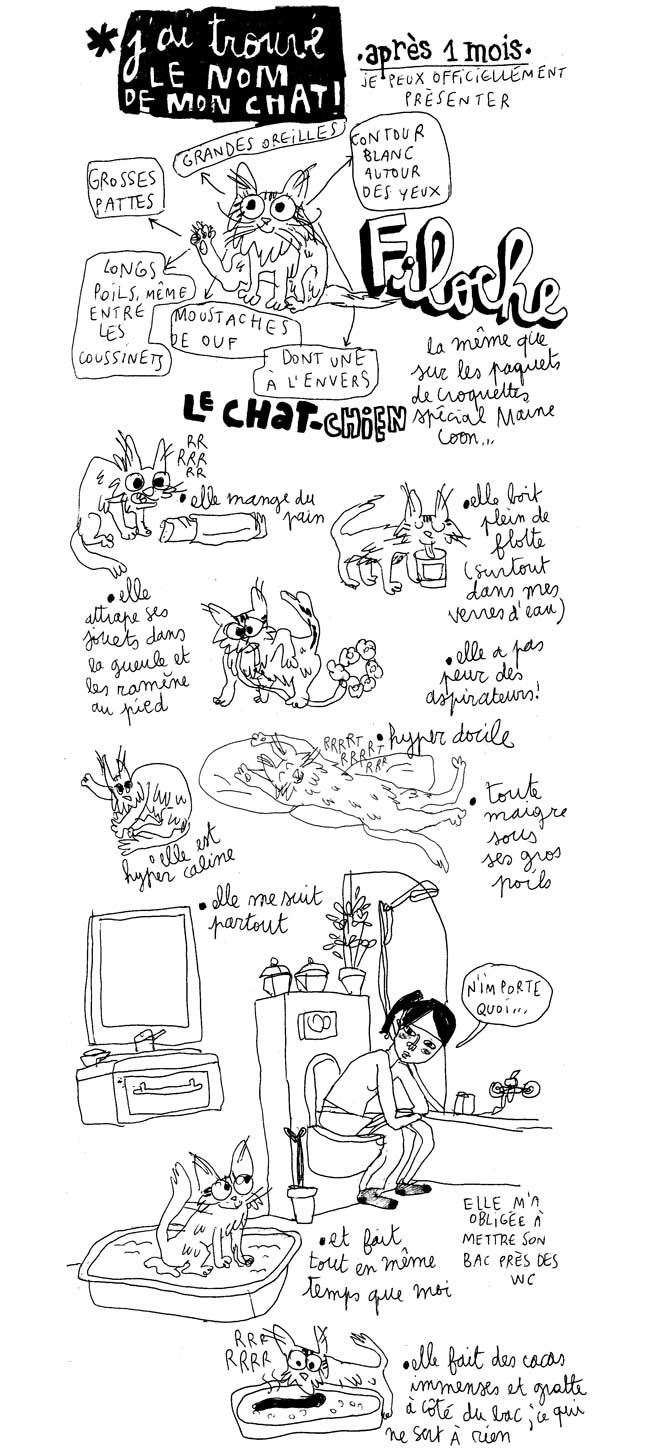 *j'ai trouvé
LE NOM
DE MON CHAT!
•après 1 mois•
JE PEUX OFFICIELLEMENT
PRÉSENTER
GRANDES OREILLES
CONTOUR
BLANC
AUTOUR
DES YEUX
GROSSES
PATTES
LONGS
POILS, MÊME
ENTRE
LES
COUSSINETS
MOUSTACHES
DE OUF
DONT UNE
À L'ENVERS
Filoche
la même que
sur les paquets
de croquettes
spécial Maine
Coon...
LE CHAT-CHIEN
RR
RRR
RR
•elle mange du
pain
•elle boit
plein de
flotte
(surtout
dans mes
verres d'eau)
•elle
attrape ses
jouets dans
la gueule et
les ramène
au pied
•elle a pas
peur des
aspirateurs!
RRRRT
RRRRT
RRR
•hyper docile
•toute
maigre
sous
ses gros
poils
•elle est
hyper caline
•elle me suit
partout
N'IMPORTE
QUOI...
ELLE M'A
OBLIGÉE À
METTRE SON
BAC PRÈS DES
WC
•et fait
tout en même
temps que moi
RRR
RRRR
•elle fait des cacas
immenses et gratte
à côté du bac, ce qui
ne sert à rien